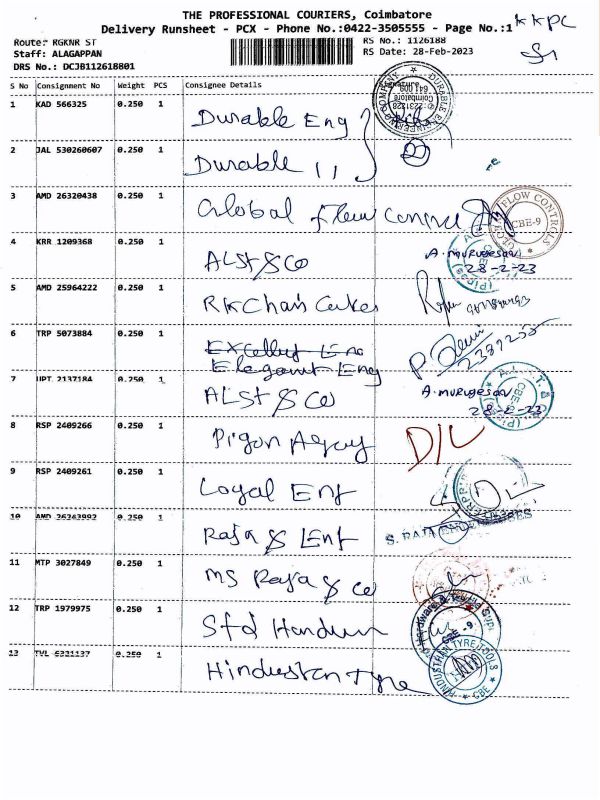 THE PROFESSIONAL COURIERS, Coimbatore
Delivery Runsheet - PCX - Phone No.:0422-3505555 - Page No.:1
KKPC
Route: RGKNR ST
RS No.: 1126188
Staff: ALAGAPPAN
RS Date: 28-Feb-2023
DRS No.: DCJB112618801
S No Consignment No Weight PCS Consignee Details
1 KAD 566325 0.250 1 Durable Eng
2 JAL 530260607 0.250 1 Durable 11
3 AMD 26320438 0.250 1 Global Flow Control
4 KRR 1209368 0.250 1 ALST & Co A. MURUGESAN
28-2-23
5 AMD 25964222 0.250 1 RK Chain Cakes
6 TRP 5073884 0.250 1
Elegant Eng
7 UPT 2137184 0.250 1 ALST & Co A. MURUGESAN
28-2-23
8 RSP 2409266 0.250 1 D/L
9 RSP 2409261 0.250 1 Loyal Ent
10 AMD 26243992 0.250 1 Raja & Ent S. RAJA ENTERPRISES
11 MTP 3027849 0.250 1 MS Raja & Co
12 TRP 1979975 0.250 1 Std
13 TVL 6321137 0.250 1 Hindustan Tyre
DURABLE ENGINEERING COMPANY
Coimbatore
641 009
FLOW CONTROLS
CBE-9
HINDUSTHAN TYRE TOOLS
CBE